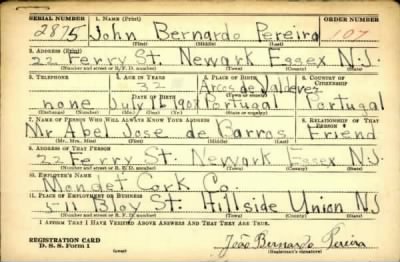 SERIAL NUMBER 1. NAME (Print) ORDER NUMBER
2875 John Bernardo Pereira 107
(First) (Middle) (Last)
2. ADDRESS (Print)
22 Ferry St. Newark Essex N.J.
(Number and street or R. F. D. number) (Town) (County) (State)
3. TELEPHONE 4. AGE IN YEARS 5. PLACE OF BIRTH 6. COUNTRY OF CITIZENSHIP
Arcos de Valdevez
DATE OF BIRTH
none July 12 Portugal Portugal
(Exchange) (Number) (Mo.) (Day) (Yr.) (State or country)
7. NAME OF PERSON WHO WILL ALWAYS KNOW YOUR ADDRESS 8. RELATIONSHIP OF THAT PERSON
Mr Abel Jose de Barros Friend
(Mr., Mrs., Miss) (First) (Middle) (Last)
9. ADDRESS OF THAT PERSON
22 Ferry St. Newark Essex N.J.
(Number and street or R. F. D. number) (Town) (County) (State)
10. EMPLOYER'S NAME
Cork Co.
11. PLACE OF EMPLOYMENT OR BUSINESS
5-11 Bloy St. Hillside Union NJ
(Number and street or R. F. D. number) (Town) (County) (State)
I AFFIRM THAT I HAVE VERIFIED ABOVE ANSWERS AND THAT THEY ARE TRUE.
REGISTRATION CARD
D. S. S. Form 1 (over) João Bernardo Pereira
(Registrant's signature)